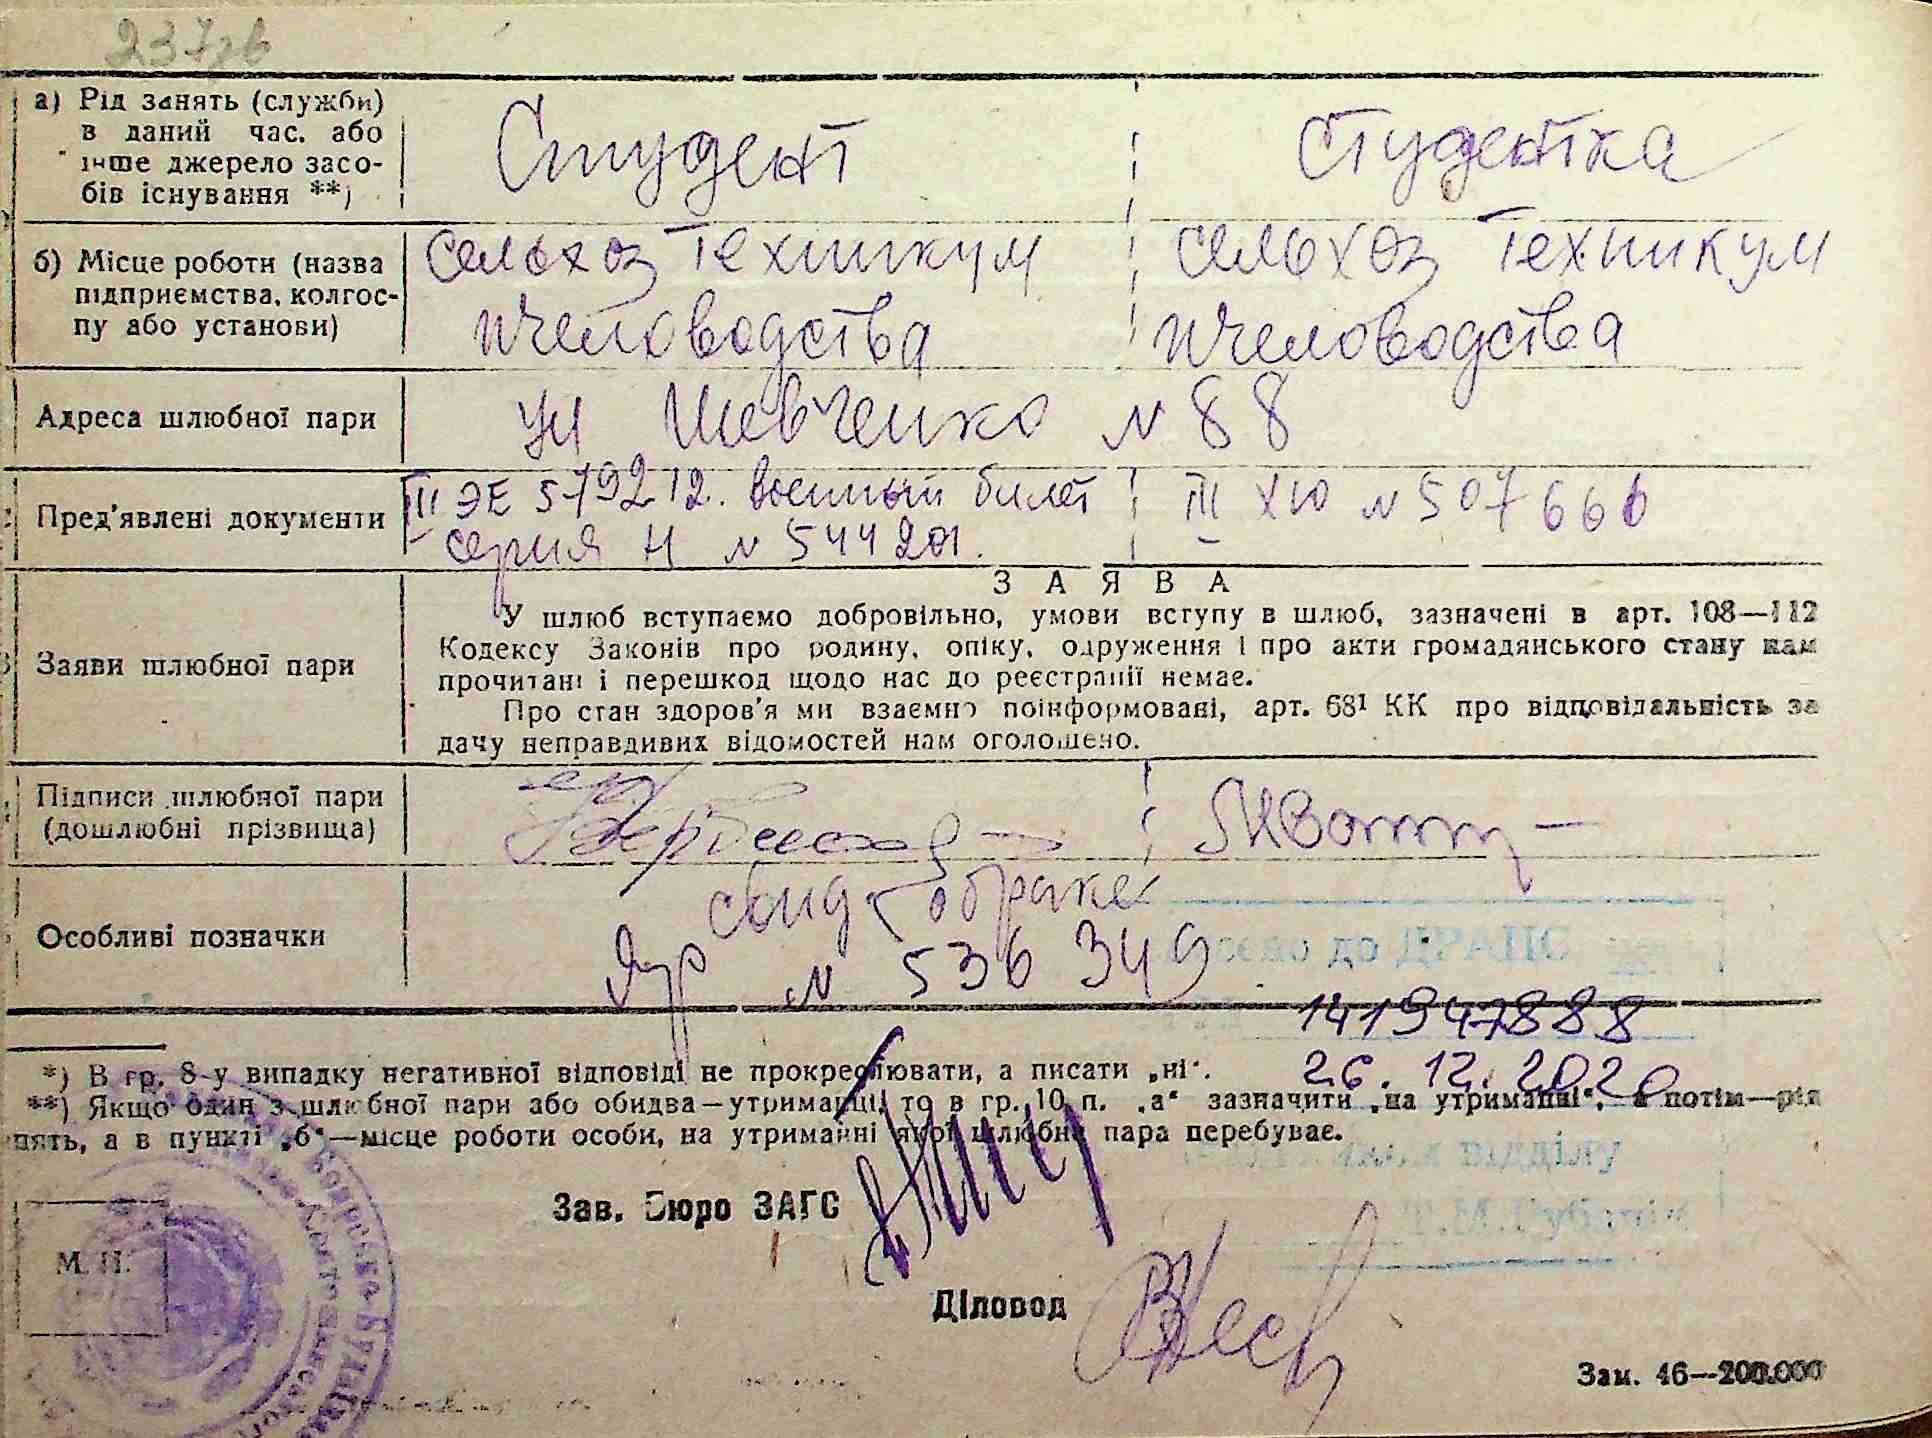 237зв
а) Рід занять (служби) Студент Студентка
в даний час. або
інше джерело засо-
бів існування **)
б) Місце роботи (назва сельхоз техникум сельхоз техникум
підприємства, колгос- пчеловодства пчеловодства
пу або установи)
Адреса шлюбної пари ул Шевченко N 88
Пред'явлені документи III ЭЕ 579212. военный билет III ХЮ N 507666
серия Н N 544201.
ЗАЯВА
Заяви шлюбної пари
У шлюб вступаємо добровільно, умови вступу в шлюб, зазначені в арт. 108—112
Кодексу Законів про родину, опіку, одруження і про акти громадянського стану нам
прочитані і перешкод щодо нас до реєстрації немає.
Про стан здоров'я ми взаємно поінформовані, арт. 68¹ КК про відповідальність за
дачу неправдивих відомостей нам оголошено.
Підписи шлюбної пари
(дошлюбні прізвища)
Особливі позначки
свид о браке
N 536349
до ДРАЦС
141947888
26.12.2020
*) В гр. 8 у випадку негативної відповіді не прокреслювати, а писати „ні".
**) Якщо один з шлюбної пари або обидва—утриманці, то в гр. 10 п. „а" зазначити „на утриманні", а потім—рід
нять, а в пункті „б"—місце роботи особи, на утриманні якої шлюбна пара перебуває.
відділу
Зав. Бюро ЗАГС
М. П.
Діловод
Зам. 46—200.000